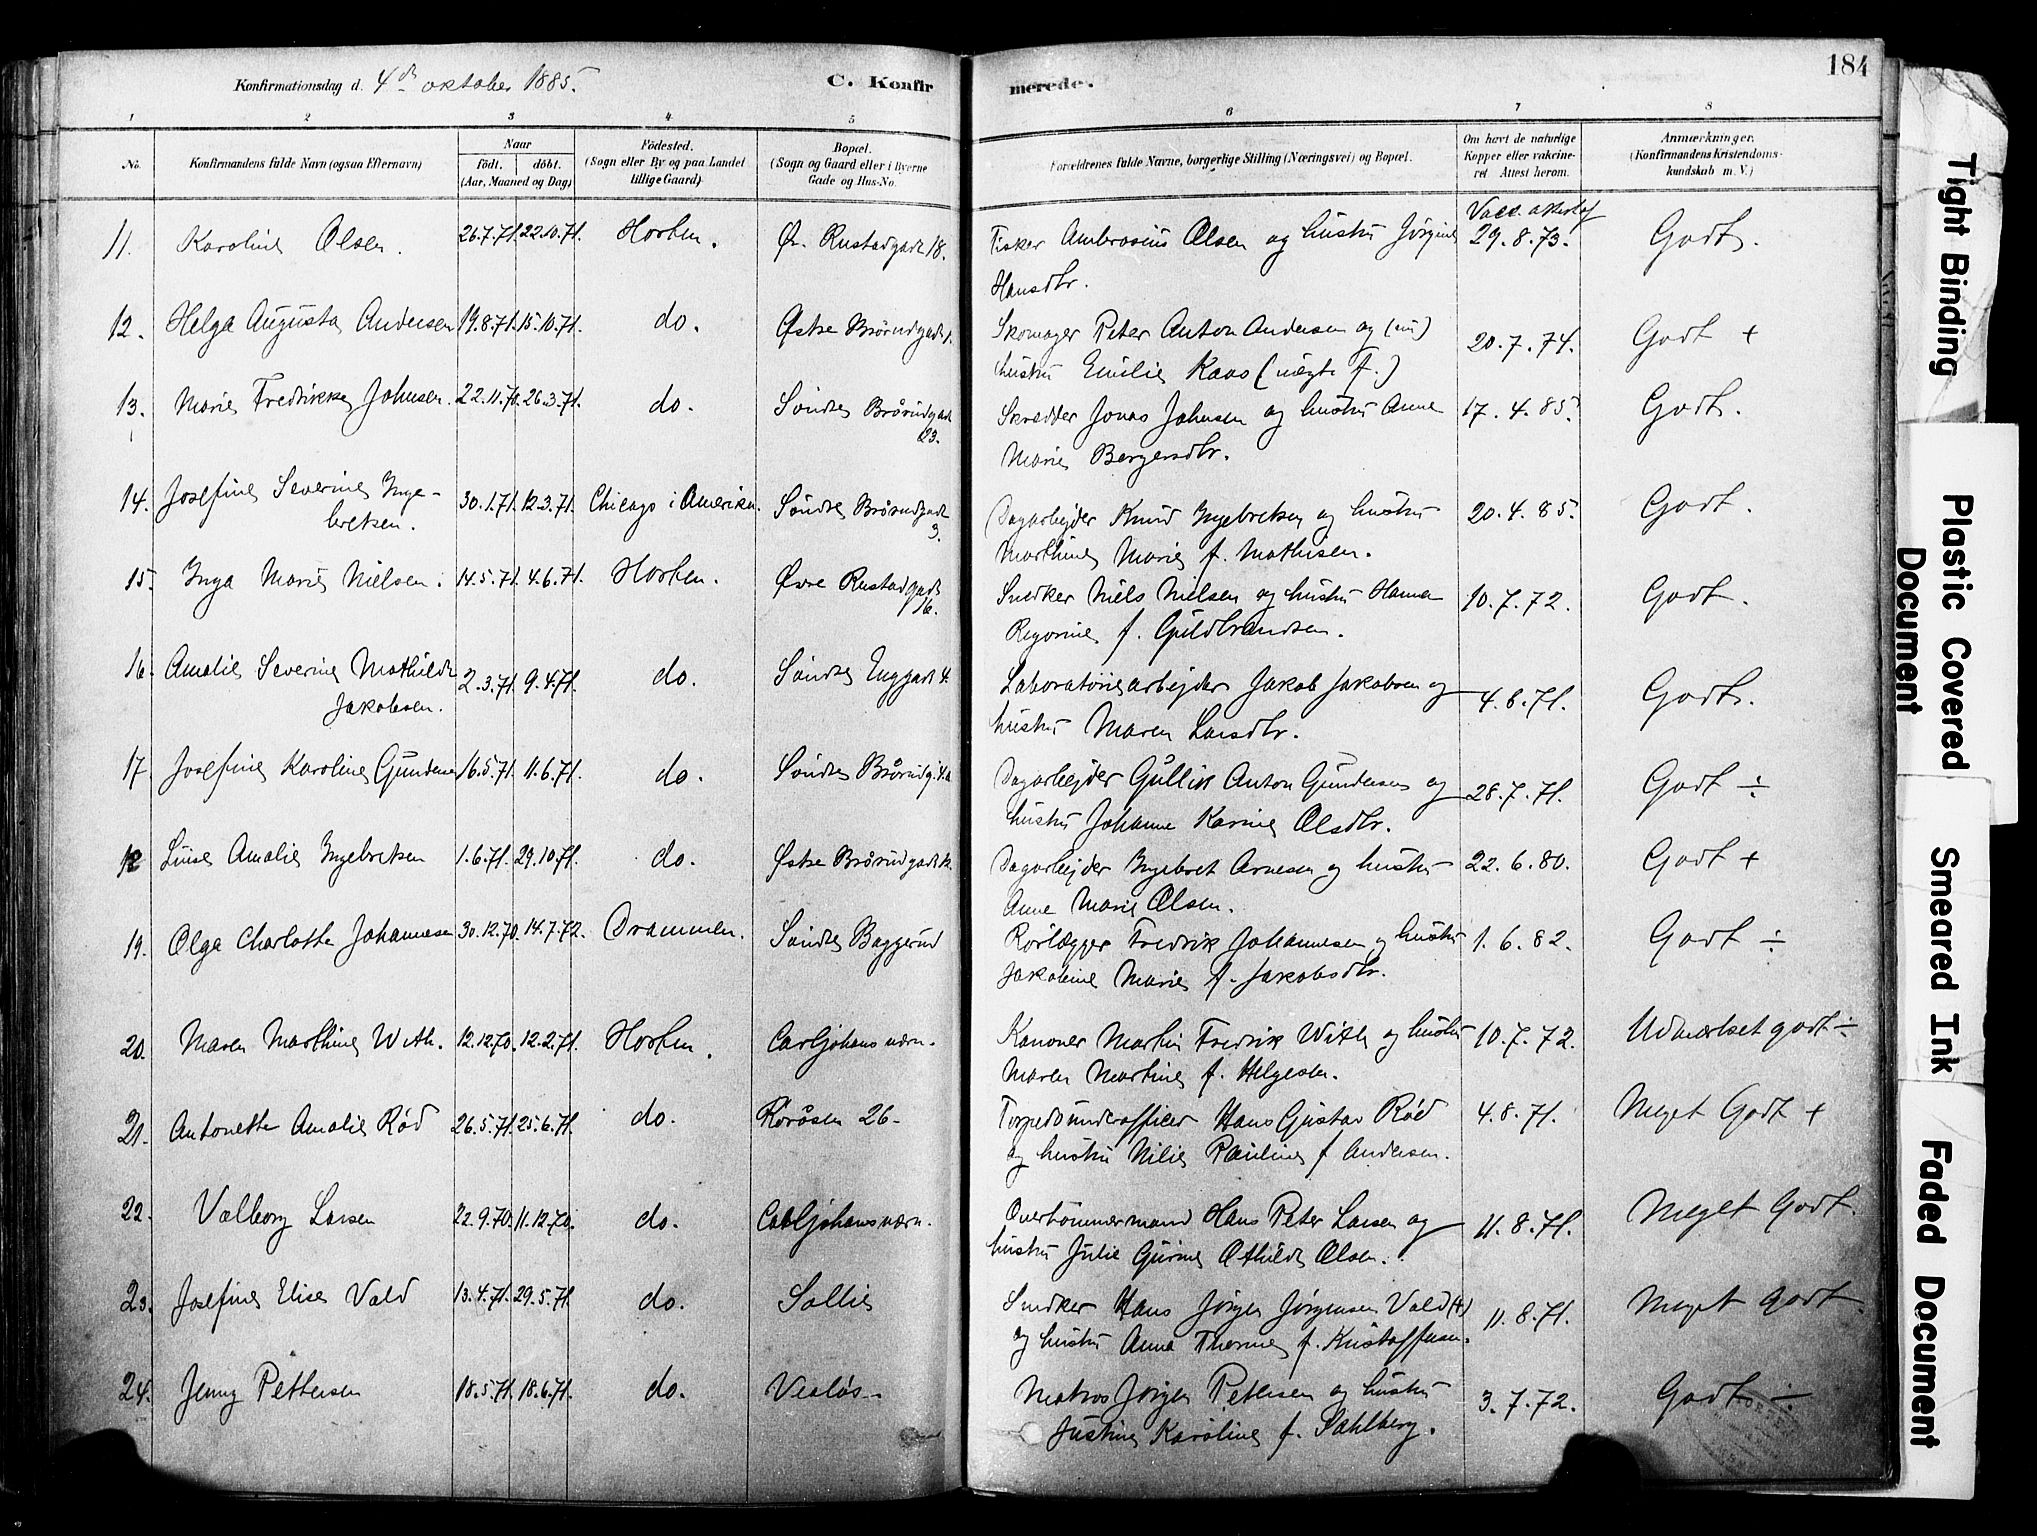 184
Konfirmationsdag d. 4de oktober 1885.
C. Konfirmerede.
1 2 3 4 5 6 7 8
No. Konfirmandens fulde Navn (ogsaa Efternavn) Naar födt. döbt. (Aar, Maaned og Dag) Födested. (Sogn eller By og paa Landet tillige Gaard) Bopæl. (Sogn og Gaard eller i Byerne Gade og Hus-No. Forældrenes fulde Navne, borgerlige Stilling (Næringsvei) og Bopæl. Om havt de naturlige Kopper eller vakcineret Attest herom. Anmærkninger. (Konfirmandens Kristendomskundskab m. V.)
11. Karoline Olsen. 26.7.71. 22.10.71. Horten. Øv. Rustadgade 18. Fisker Ambrosius Olsen og hustru Jørgine 29.8.73. Godt.
Hansdtr.
12. Helga Augusta Andersen 19.8.71. 15.10.71. do. Østre Brårudgade 1. Skomager Peter Anton Andersen og 20.7.74. Godt +
hustru Emilie Kaas (nægte f.)
13. Marie Fredrikke Johnsen. 22.11.70. 26.3.71. do. Søndre Brårudgade 23. Skrædder Jonas Johnsen og hustru Anne 17.4.85. Godt.
Marie Bergersdtr.
14. Josefine Severine Inge- 30.1.71. 12.3.71. Chicago i Amerika. Søndre Brårudgade 3. Dagarbejder Knud Ingebretsen og hustru 20.4.85. Godt.
bretsen. Marthine Marie f. Mathisen.
15. Inga Marie Nielsen. 14.5.71. 4.6.71. Horten. Øvre Rustadgade 16. Snedker Niels Nielsen og hustru Hanna 10.7.72. Godt.
Regorine f. Guldbrandsen.
16. Amalie Severine Mathilde 2.3.71. 9.4.71. do. Søndre Enggade 4. Laboratoriearbejder Jakob Jakobsen og 4.8.71. Godt.
Jakobsen. hustru Maren Larsdtr.
17. Josefine Karoline Gundersen 16.5.71. 11.6.71. do. Søndre Brårudg. Dagarbejder Gullik Anton Gundersen og 28.7.71. Godt ÷
hustru Johanne Karine Olsdtr.
18 Luise Amalie Ingebretsen 1.6.71. 29.10.71. do. Østre Brårudgade Dagarbejder Ingebret Arnesen og hustru 22.6.80. Godt +
Anne Marie Olsen.
19. Olga Charlotte Johannesen 30.12.70. 14.7.72. Drammen. Søndre Baggerud Rørlægger Fredrik Johannesen og hustru 1.6.82. Godt ÷
Jakobine Marie f. Jakobsdtr.
20. Maren Marthine With. 12.12.70. 12.2.71. Horten. Carljohansværn. Kanoner Martin Fredrik With og hustru 10.7.72. Udmærket godt ÷
Maren Martine f. Helgesen.
21. Antonette Amalie Rød 26.5.71. 25.6.71. do. Røråsen 26. Torpedounderofficer Hans Gustav Rød 4.8.71. Meget Godt +
og hustru Nilie Pauline f Andersen.
22. Valborg Larsen 22.9.70. 11.12.70. do. Carljohansværn. Overtømmermand Hans Peter Larsen og 11.8.71. Meget Godt.
hustru Julie Gurine Othilde Olsen.
23. Josefine Elise Vold 13.4.71. 29.5.71 do. Sollie Snedker Hans Jørgen Jørgensen Vold (+) 11.8.71. Meget godt.
og hustru Anna Thorine f. Kristoffersen.
24. Jenny Pettersen 18.5.71. 18.6.71. do. Vealøs. Matros Jørgen Pettersen og hustru 3.7.72. Godt ÷
Justine Karoline f. Dahlberg.
Tight Binding
Plastic Covered
Document
Smeared Ink
Faded Document